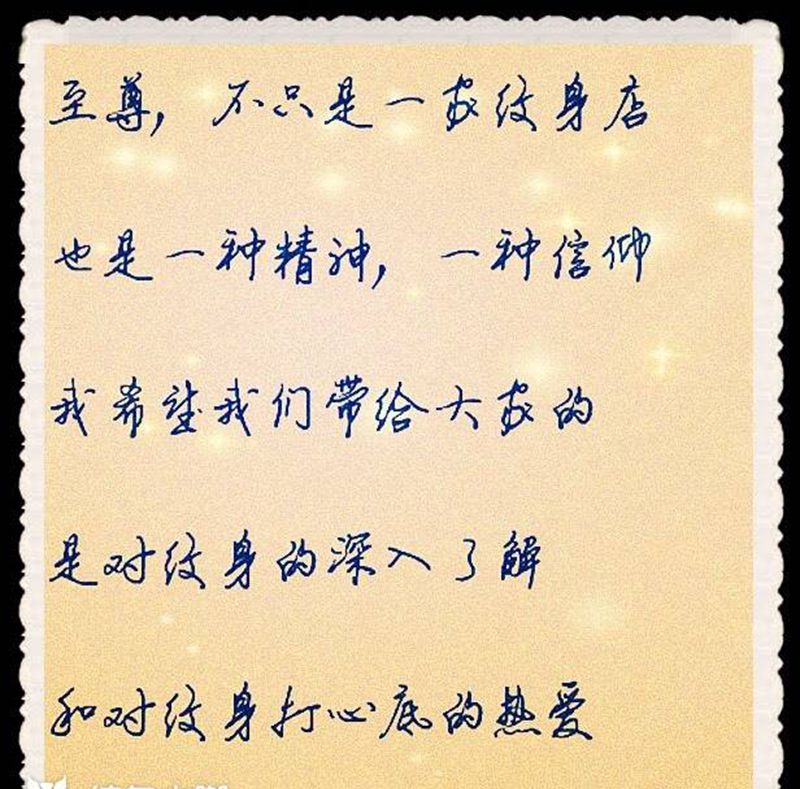 至尊，不只是一家纹身店
也是一种精神，一种信仰
我希望我们带给大家的
是对纹身的深入了解
和对纹身打心底的热爱